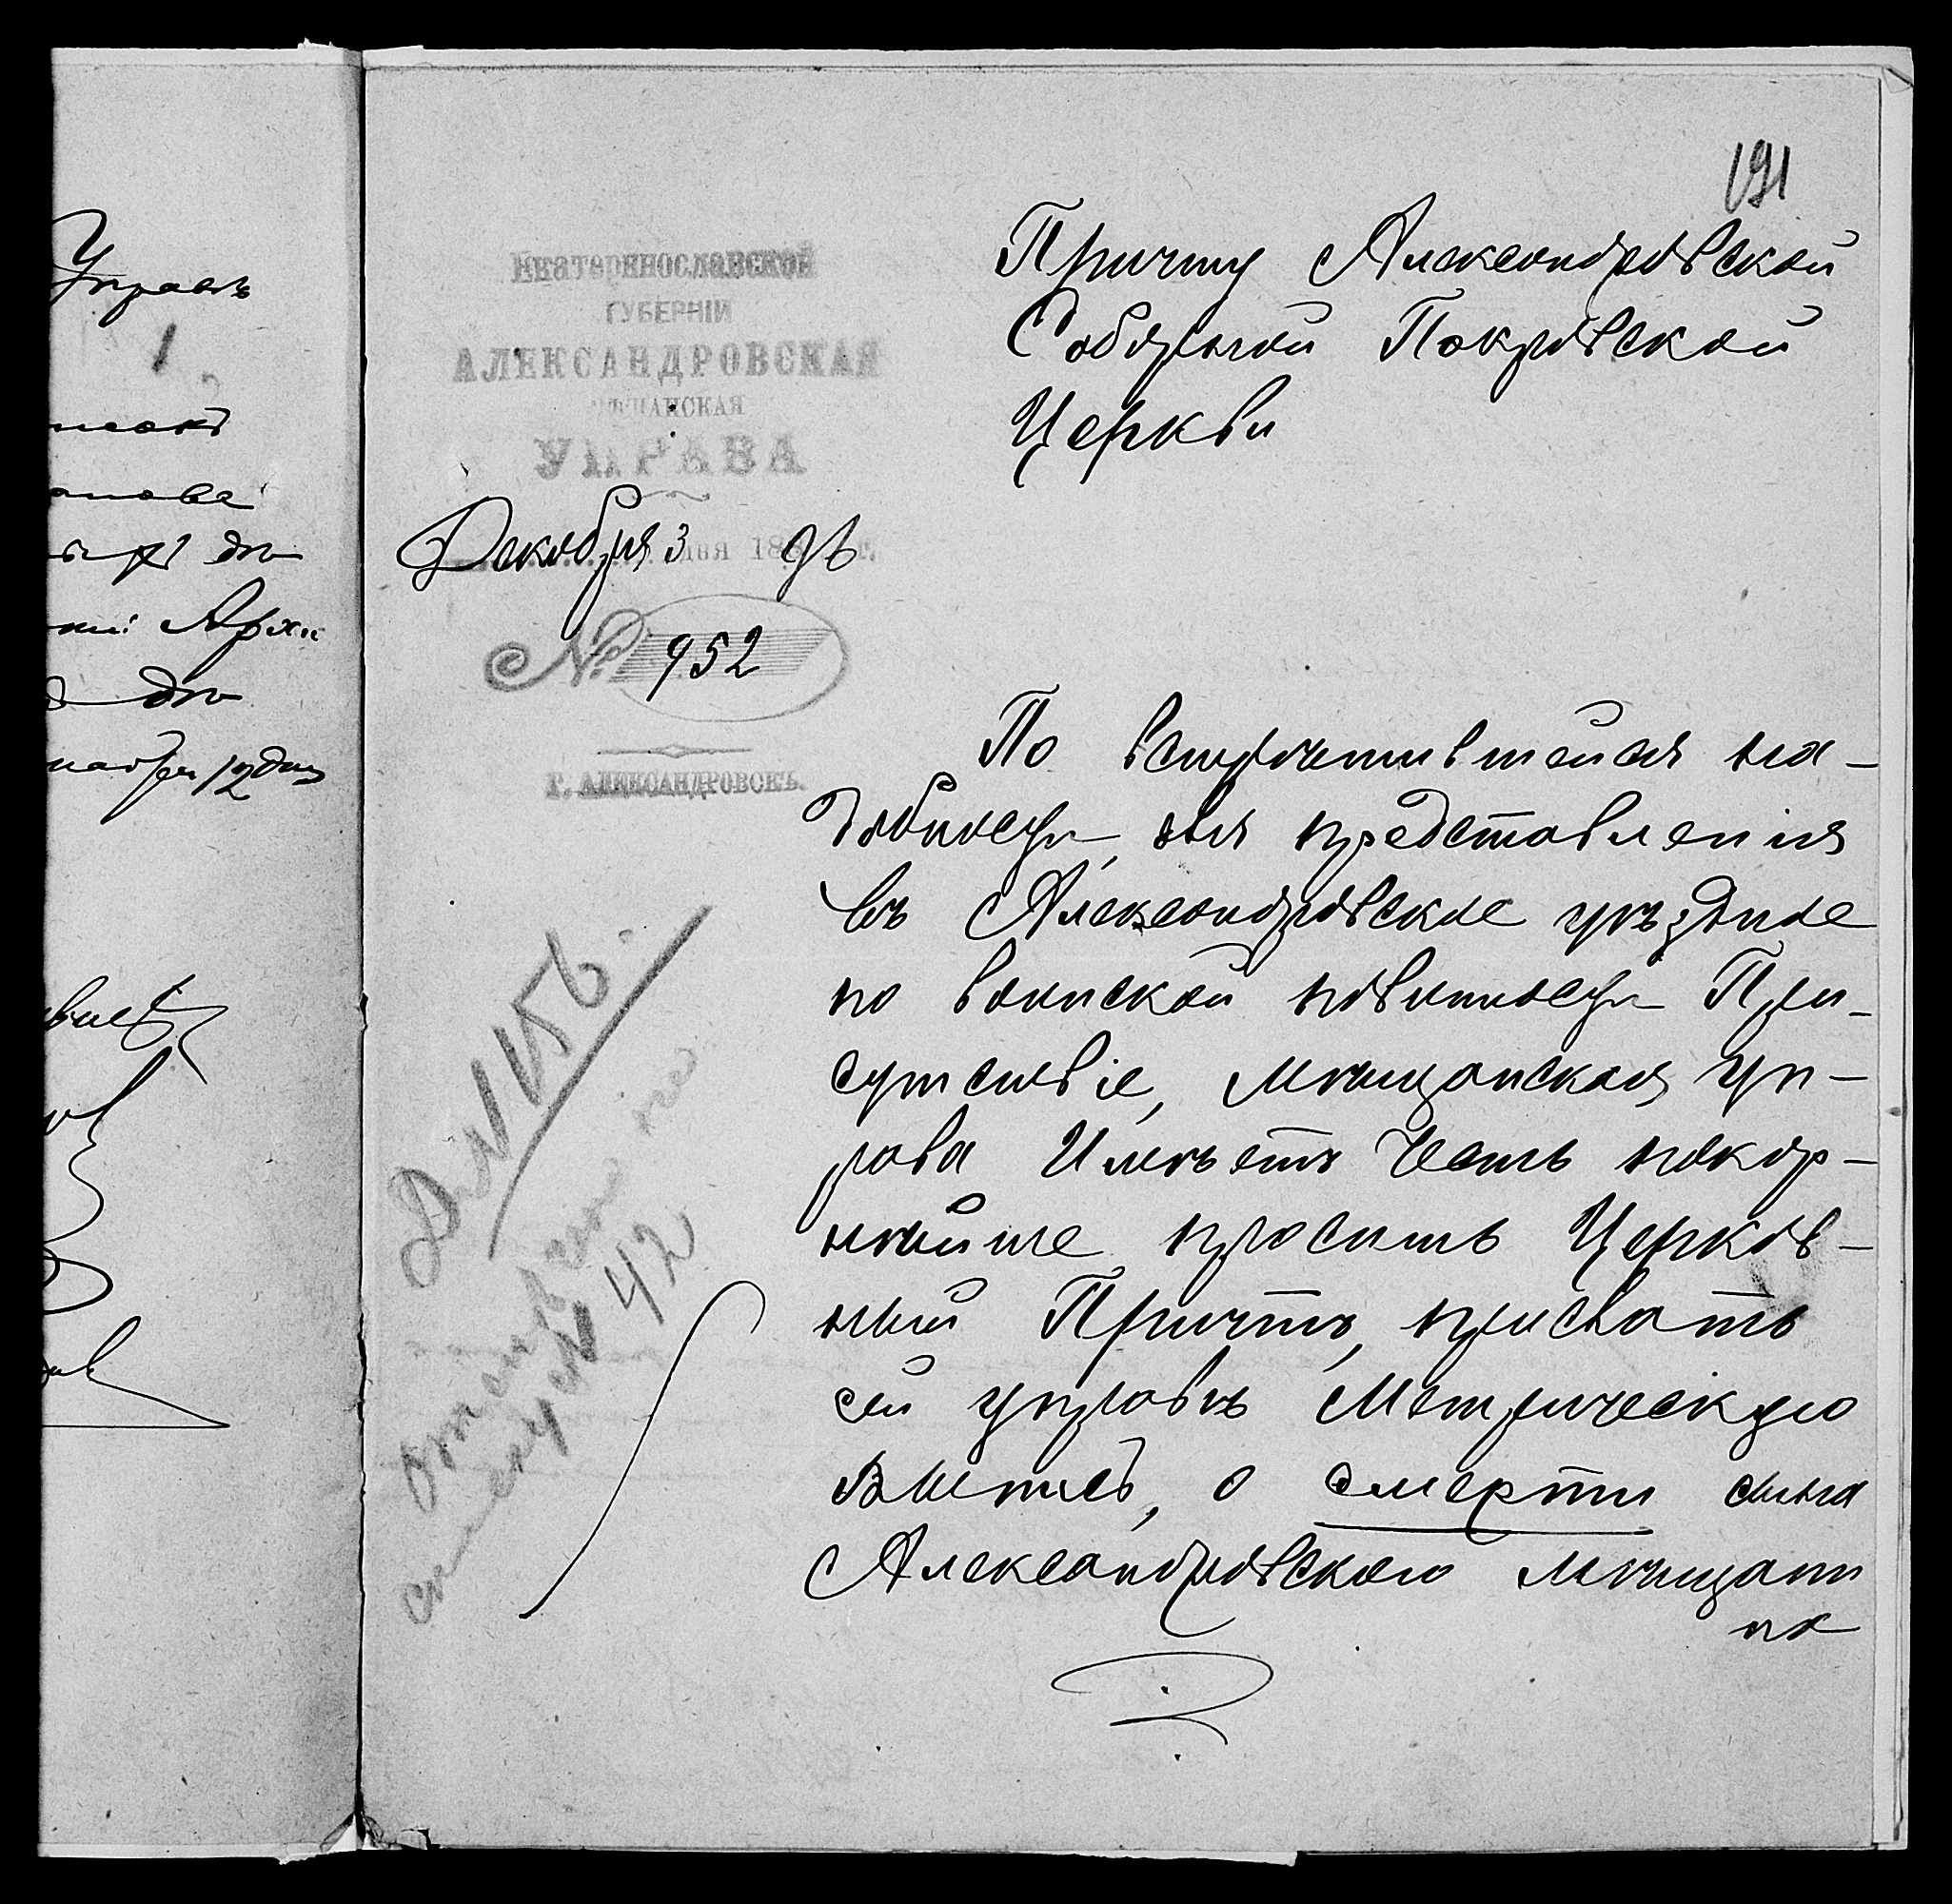 Управѣ
191
Екатеринославской
ГУБЕРНІИ
АЛЕКСАНДРОВСКАЯ
МѢЩАНСКАЯ
УПРАВА
Декабря 3 дня 1896 г.
№ 952
Г. АЛЕКСАНДРОВСКЪ.
Причту Александровской
Соборной Покровской
Церкви
По встрѣтившейся на-
добности, для представленія
въ Александровское уѣздное
по воинской повинности При-
сутствіе, мѣщанская Уп-
рава Имѣетъ Честь покор-
нѣйше просить Церков-
ный Причтъ, прислать
сей управѣ Метрическую
Выпись, о смерти сына
Александровского мѣщани
на
Д. № 156.
№ 42